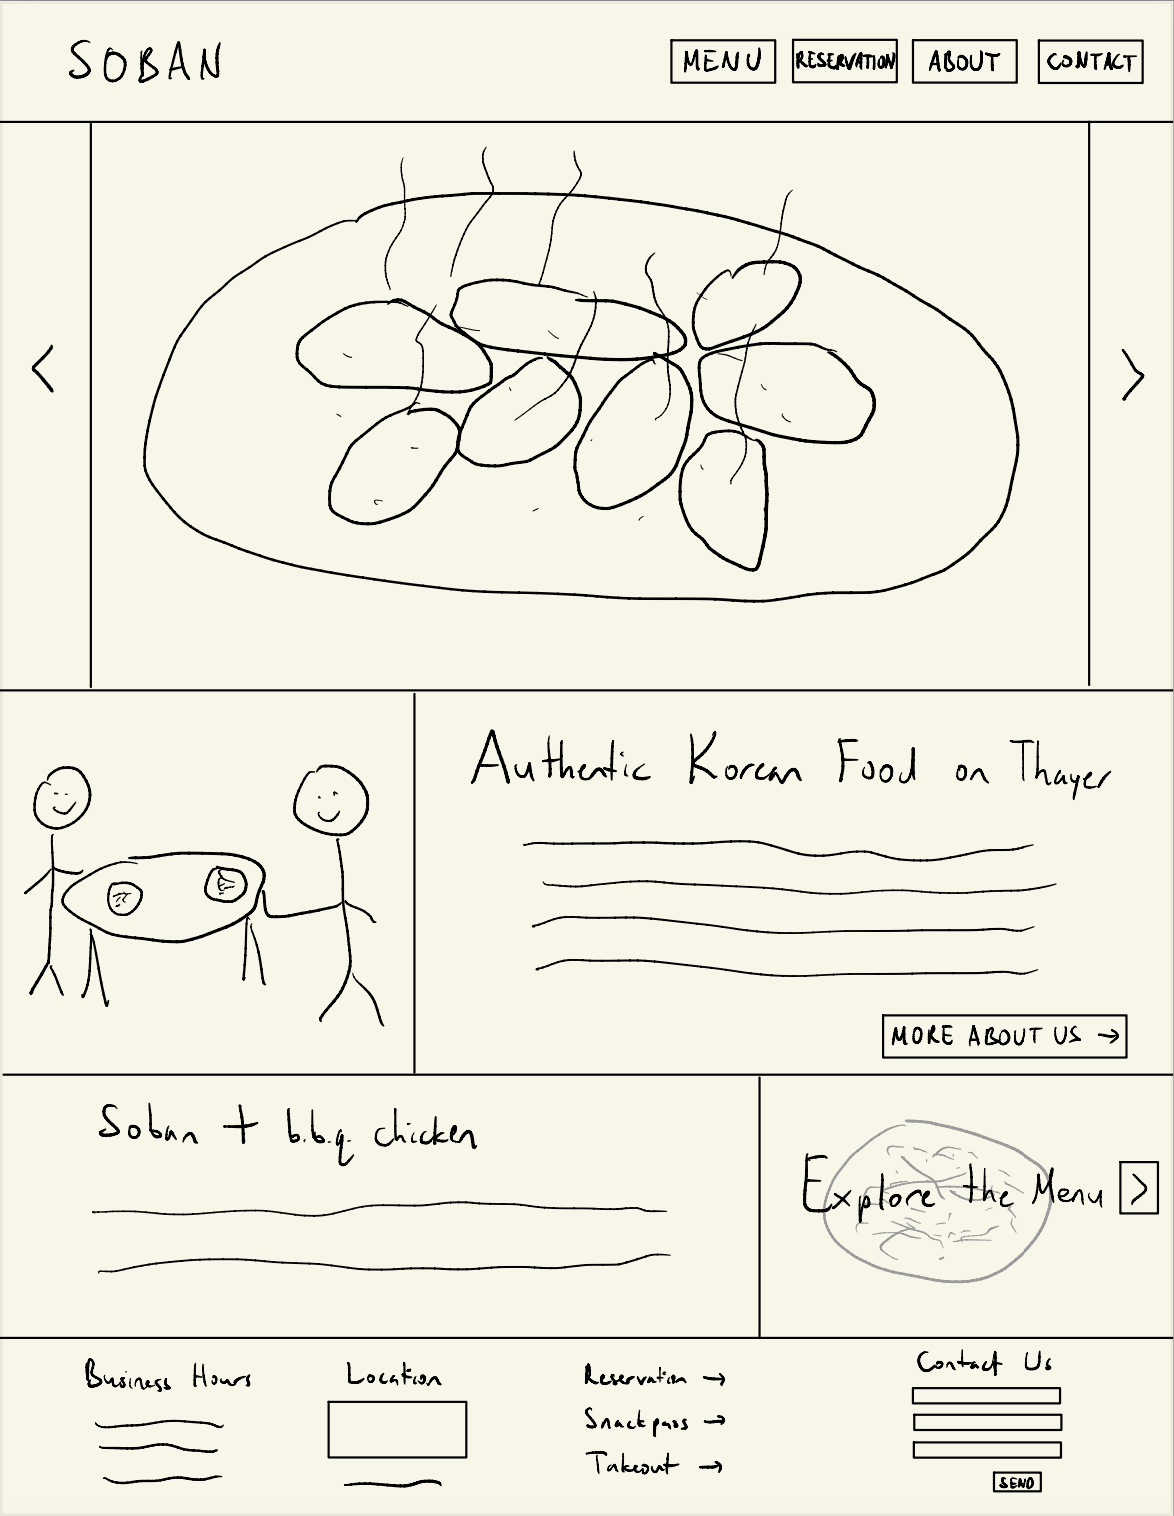 SOBAN
MENU
RESERVATION
ABOUT
CONTACT
<
>
Authentic Korean Food on Thayer
MORE ABOUT US →
Soban + b.b.q. chicken
Explore the Menu >
Business Hours
Location
Reservation →
Snackpass →
Takeout →
Contact Us
SEND